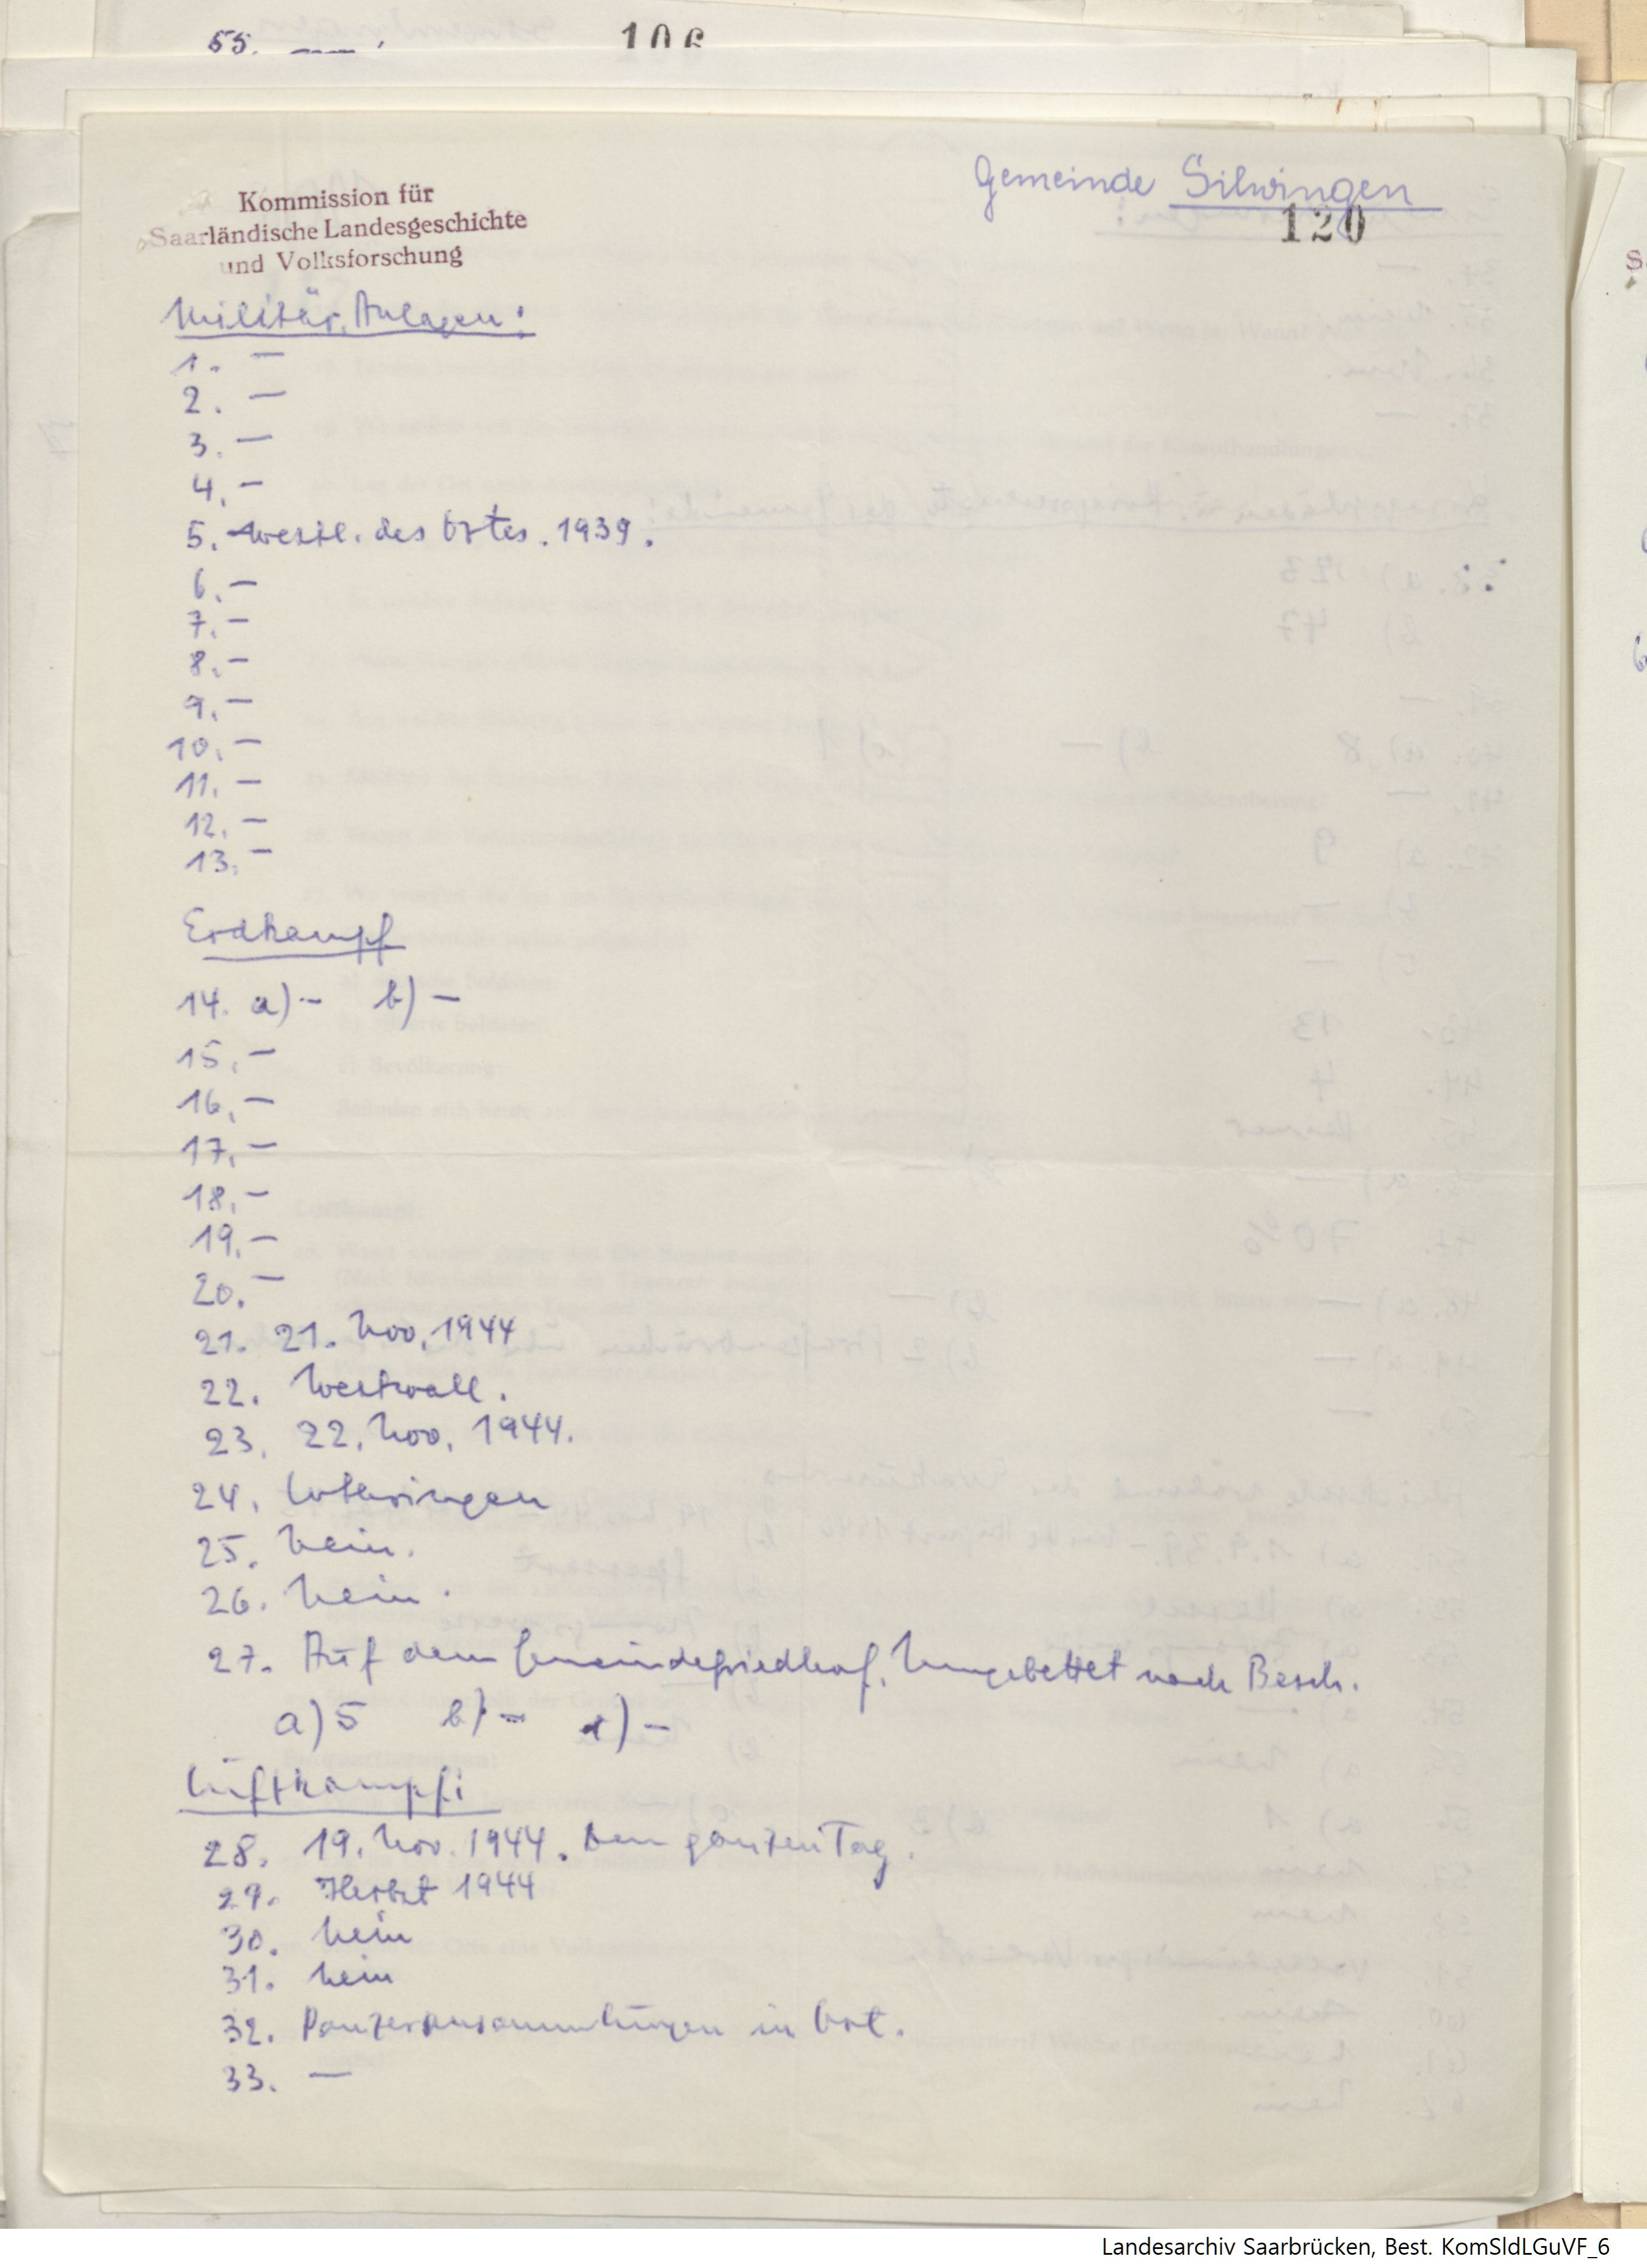 55. —
106
Gemeinde Silwingen
120
Kommission für
Saarländische Landesgeschichte
und Volksforschung
Militär. Anlagen:
1. —
2. —
3. —
4. —
5. westl. des Ortes. 1939.
6. —
7. —
8. —
9. —
10. —
11. —
12. —
13. —
Erdkampf
14. a) — b) —
15. —
16. —
17. —
18. —
19. —
20. —
21. 21. Nov. 1944
22. Westwall.
23. 22. Nov. 1944.
24. Lothringen
25. Nein.
26. Nein.
27. Auf dem Gemeindefriedhof. Umgebettet nach Besch.
a) 5 b) — c) —
Luftkampf:
28. 19. Nov. 1944. Den ganzen Tag.
29. Herbst 1944
30. Nein
31. Nein
32. Panzeransammlungen in Ort.
33. —
Landesarchiv Saarbrücken, Best. KomSldLGuVF_6